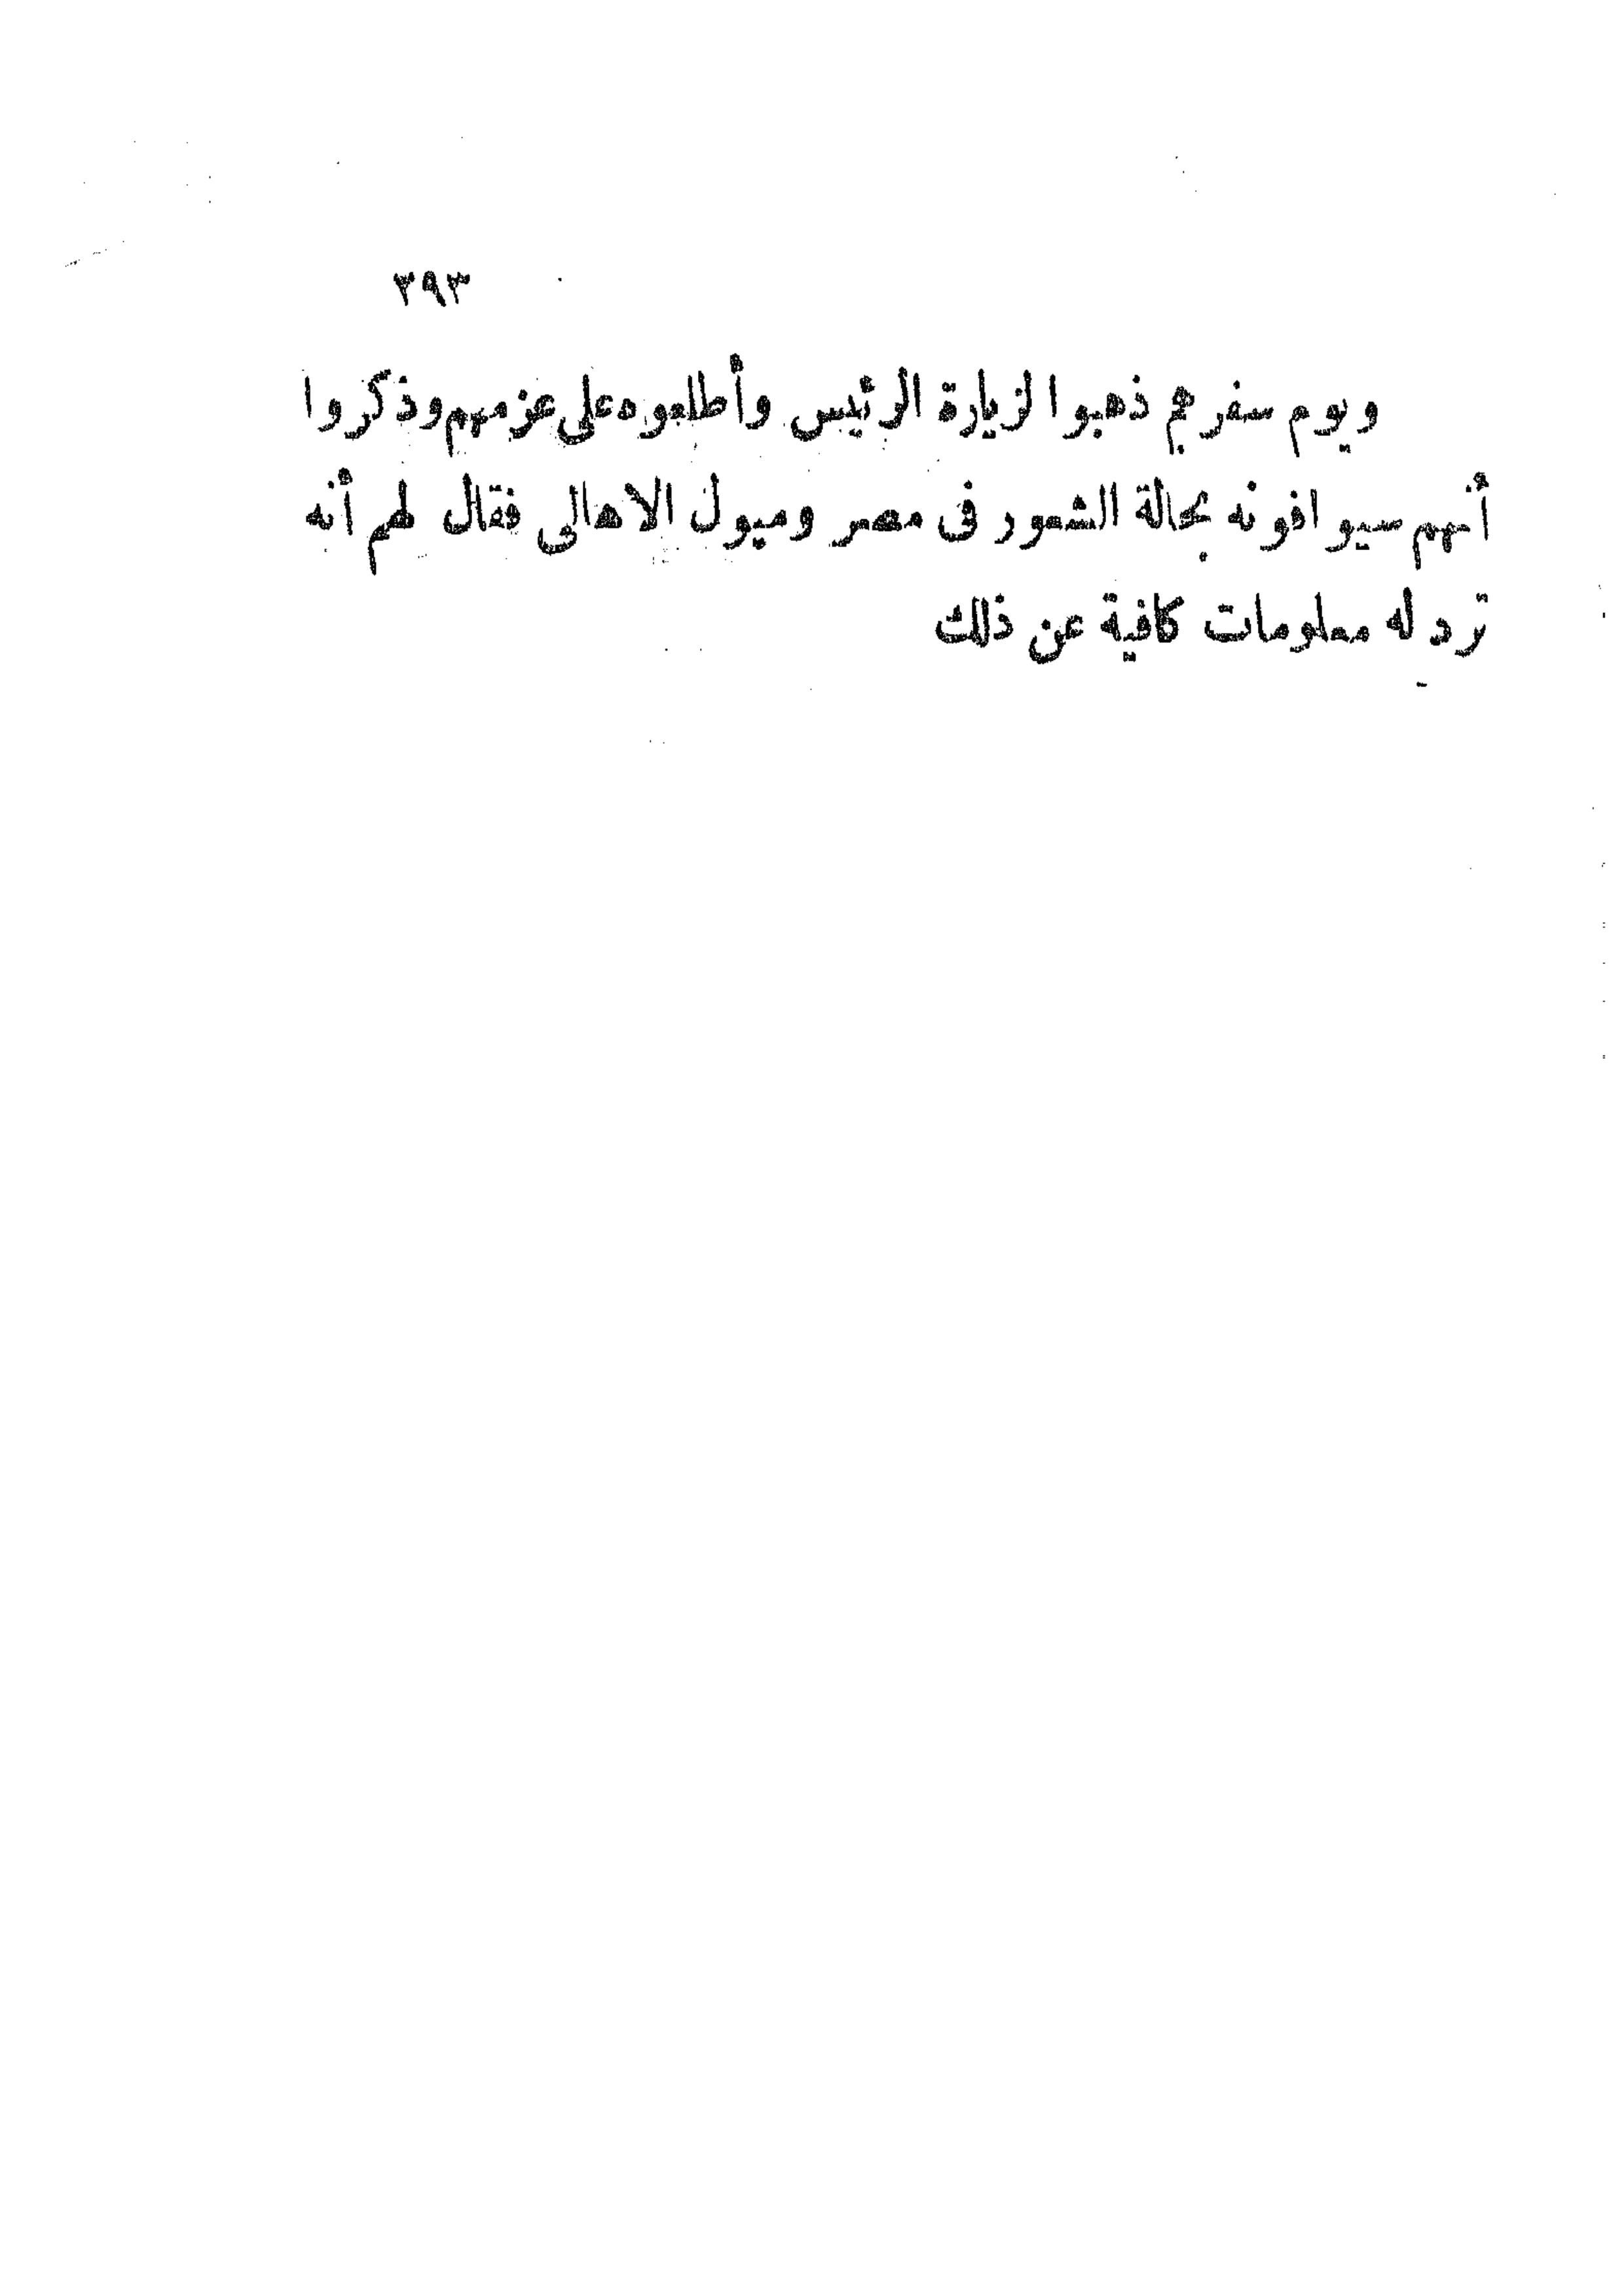 ٣٩٣
ويوم سفرهم ذهبوا لزيارة الرئيس وأطلعوه على عزمهم وذكروا
أنهم سيوافونه بحالة الشعور فى مصر وميول الاهالى فقال لهم أنه
ترد له معلومات كافية عن ذلك